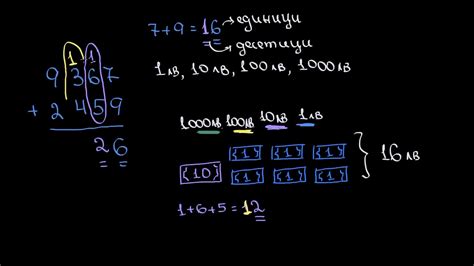 7+9=16 → единици
→ десетици
1лв, 10лв, 100лв, 1000лв
1 1
9 3 6 7
+ 2 4 5 9
2 6
1000лв 100лв 10лв 1лв
{1} {1} {1}
{10} {1} {1} {1} } 16лв
1+6+5=12